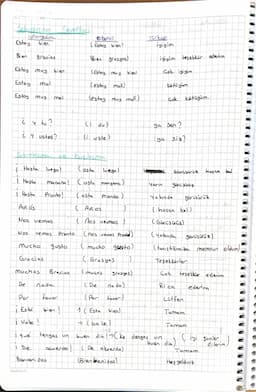 Estoy bien (Estoy bien) iyiyim
Bien gracias (Bien grasyas) iyiyim teşekkür ederim
Estoy muy bien (Estoy muy bien) Çok iyiyim
Estoy mal (Estoy mal) kötüyüm
Estoy muy mal (estoy muy mal) Çok kötüyüm
¿ y tu? (i du) ya sen?
¿ Y usted? (i uste) ya siz?
¡ Hasta luego! (asta luego)
¡ Hasta manana! (asta manana) Yarın görüşürüz
¡ Hasta Pronto! (asta pronto) Yakında görüşürüz
Adiós (Adios)
Nos vemos (Nos vemos) (Görüşürüz)
Nos vemos Pronto (Nos vemos Pronto) (Yakında görüşürüz)
Mucho gusto (mucho gusto) (tanıştığımıza memnun oldum)
Gracias (Grasyas) Teşekkürler
Muchas Gracias Çok teşekkür ederim
De nada (De nada) Rica ederim
Por favor (Por favor) Lütfen
¡ Esta bien! (Esta bien) Tamam
¡ Vale! (bale) Tamam
¡ que tengas un buen dia!
De acuerdo! Tamam
Bienvenidos (Bienbenidos) Hoşgeldiniz